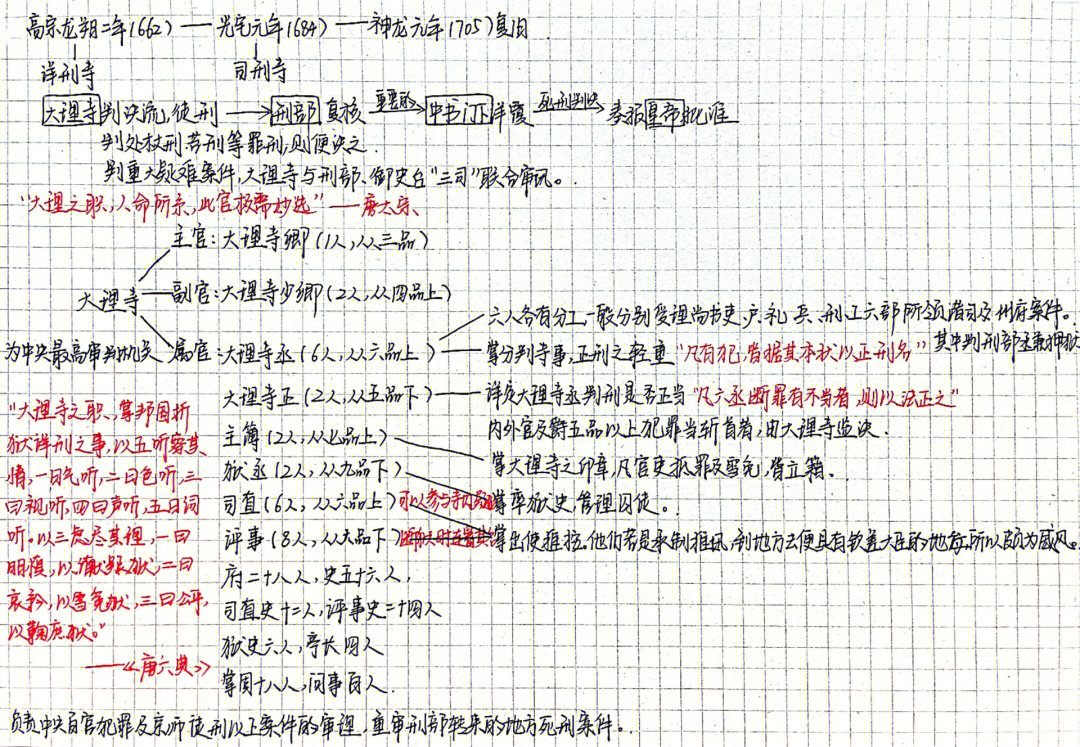 高宗龙朔二年(662) — 光宅元年(684) — 神龙元年(705)复旧
详刑寺 司刑寺
大理寺判决流,徒刑 → 刑部复核 重要的 中书门下详覆 死刑判决 奏报皇帝批准
判处杖刑笞刑等罪刑,则便决之.
判重大疑难案件,大理寺与刑部、御史台"三司"联合审讯。
"大理之职,人命所系,此官极需妙选" ——唐太宗、
主官:大理寺卿(1人,从三品)
大理寺 副官:大理寺少卿(2人,从四品上)
六人各有分工,一般分别受理尚书吏、户、礼、兵、刑、工六部所领诸司及州府案件。
为中央最高审判机关 属官:大理寺丞(6人,从六品上) 掌分判寺事,正刑之轻重"凡有犯,皆据其本状以正刑名" 其中判刑部丞兼押狱
大理寺正(2人,从五品下) 详定大理寺丞判刑是否正当"凡六丞断罪有不当者,则以法正之"
内外官及爵五品以上犯罪当斩首者,由大理寺监决.
主簿(2人,从七品上) 掌大理寺之印章,凡官吏犯罪及雪免,皆立籍.
狱丞(2人,从九品下) 掌率狱史,管理囚徒。
司直(6人,从六品上) 可以参与寺内
评事(8人,从八品下) 掌出使推按.他们若是承制推讯,到地方去便具有钦差大臣的地位,所以颇为威风。
府二十八人,史五十六人,
司直史十二人,评事史二十四人
狱史六人,亭长四人
掌固十八人,问事百人.
"大理寺之职,掌邦国折
狱详刑之事,以五听察其
情,一曰气听,二曰色听,三
曰视听,四曰声听,五曰词
听。以三虑尽其理,一曰
明慎,以谳疑狱,二曰
哀矜,以雪冤狱,三曰公平,
以鞠庶狱。"
——《唐六典》
负责中央百官犯罪及京师徒刑以上案件的审理,重审刑部转来的地方死刑案件。